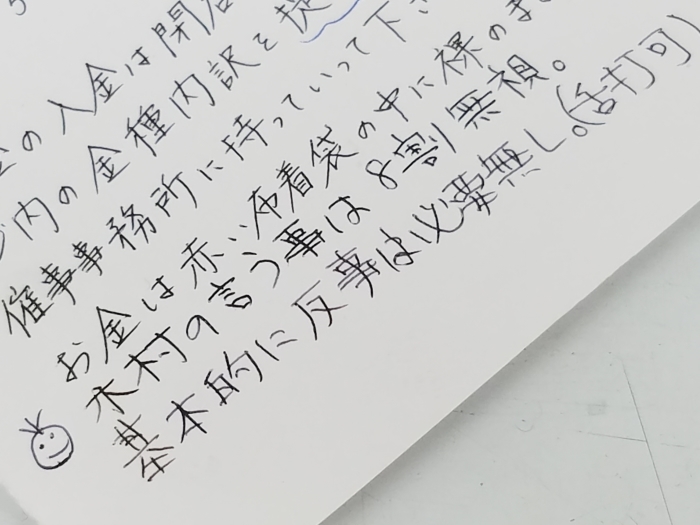 の入金は閉店
内の金種内訳を提
催事事務所に持っていって下さ
お金は赤い布着袋の中に裸のま
木村の言う事は8割無視。
基本的に反事は必要無し。(舌打可)